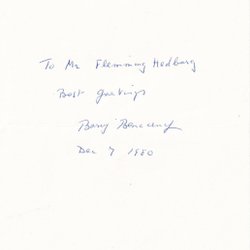 To Mr Flemming Hedberg
Best greetings
Baruj Benacerraf
Dec 7 1980